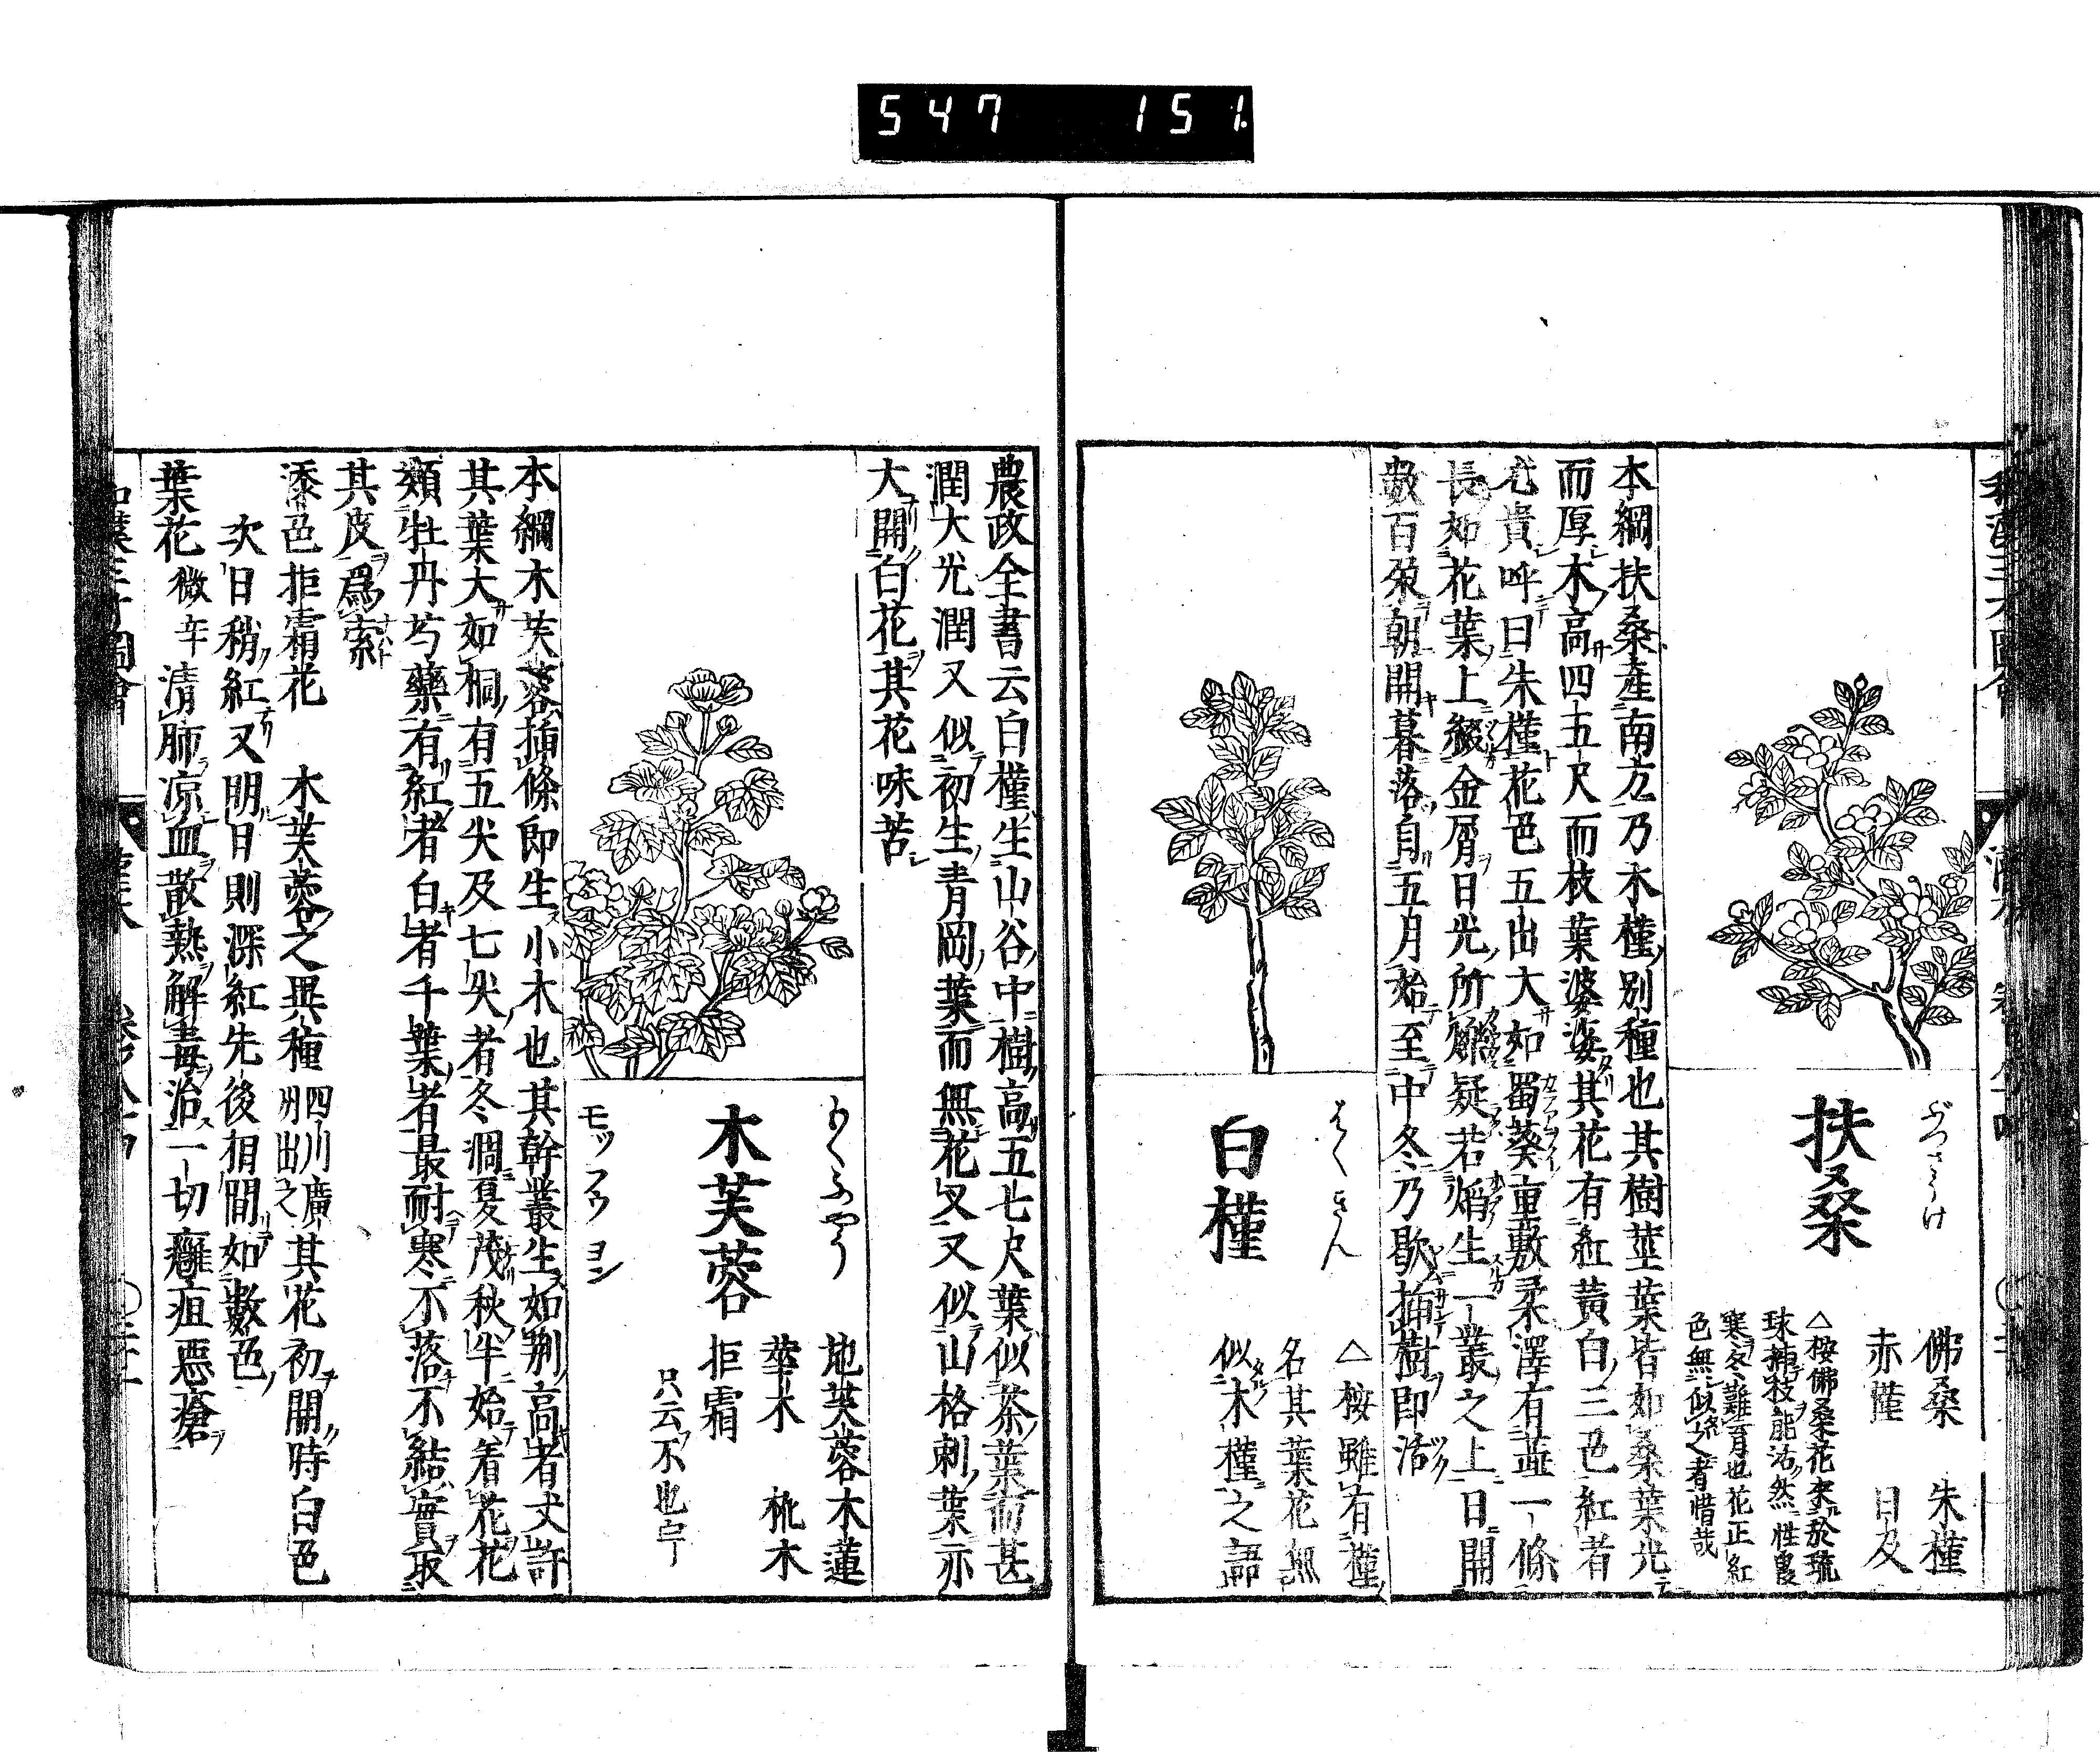 547 151
扶桑
ぶつさうけ
佛桑 朱槿
赤槿 日及
△桉佛桑花來於琉
球揷枝能活然性畏
寒冬難育也花正紅
色無似之者惜哉
本綱扶桑産南方乃木槿別種也其樹莖葉皆如桑葉光
而厚木高四五尺而枝葉婆娑其花有紅黃白三色紅者
尤貴呼曰朱槿花色五出大如蜀葵重敷柔澤有蕋一條
長如花葉上綴金屑日光所爍疑若焰生一叢之上日開
數百朶朝開暮落自五月始至中冬乃歇揷樹即活
白槿
はくきん
△桉雖有槿
名其葉花無
似木槿之語
農政全書云白槿生山谷中樹高五七尺葉似茶葉而甚
潤大光潤又似初生青岡葉而無花叉又似山格刺葉亦
大開白花其花味苦
木芙蓉
もくふやう
モッフウヨン
地芙蓉 木蓮
華木 杹木
拒霜
只云不也宇
本綱木芙蓉揷條即生小木也其幹叢生如荆高者丈許
其葉大如桐有五尖及七尖者冬凋夏茂秋半始着花花
類牡丹芍藥有紅者白者千葉者最耐寒不落不結實取
其皮爲索
添色拒霜花 木芙蓉之異種四川廣州出之其花初開時白色
次日稍紅又明日則深紅先後相間如數色
葉花 微辛 清肺凉血散熱解毒治一切癰疽惡瘡